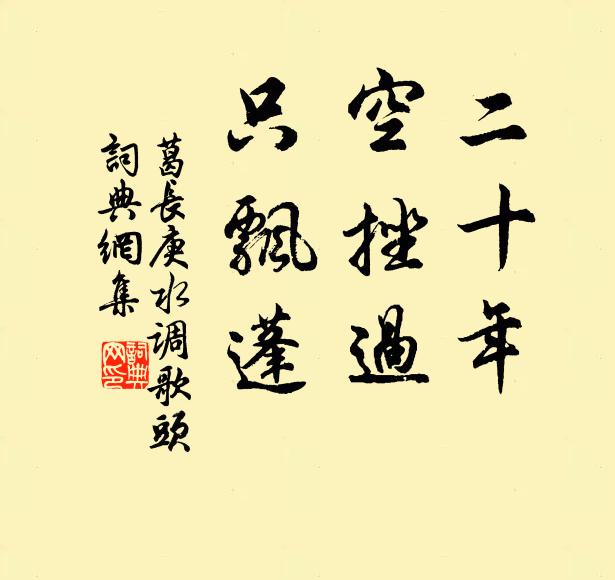 二十年
空挫過
只飄蓬
葛長庚水调歌頭
詞典網集
詞典網印